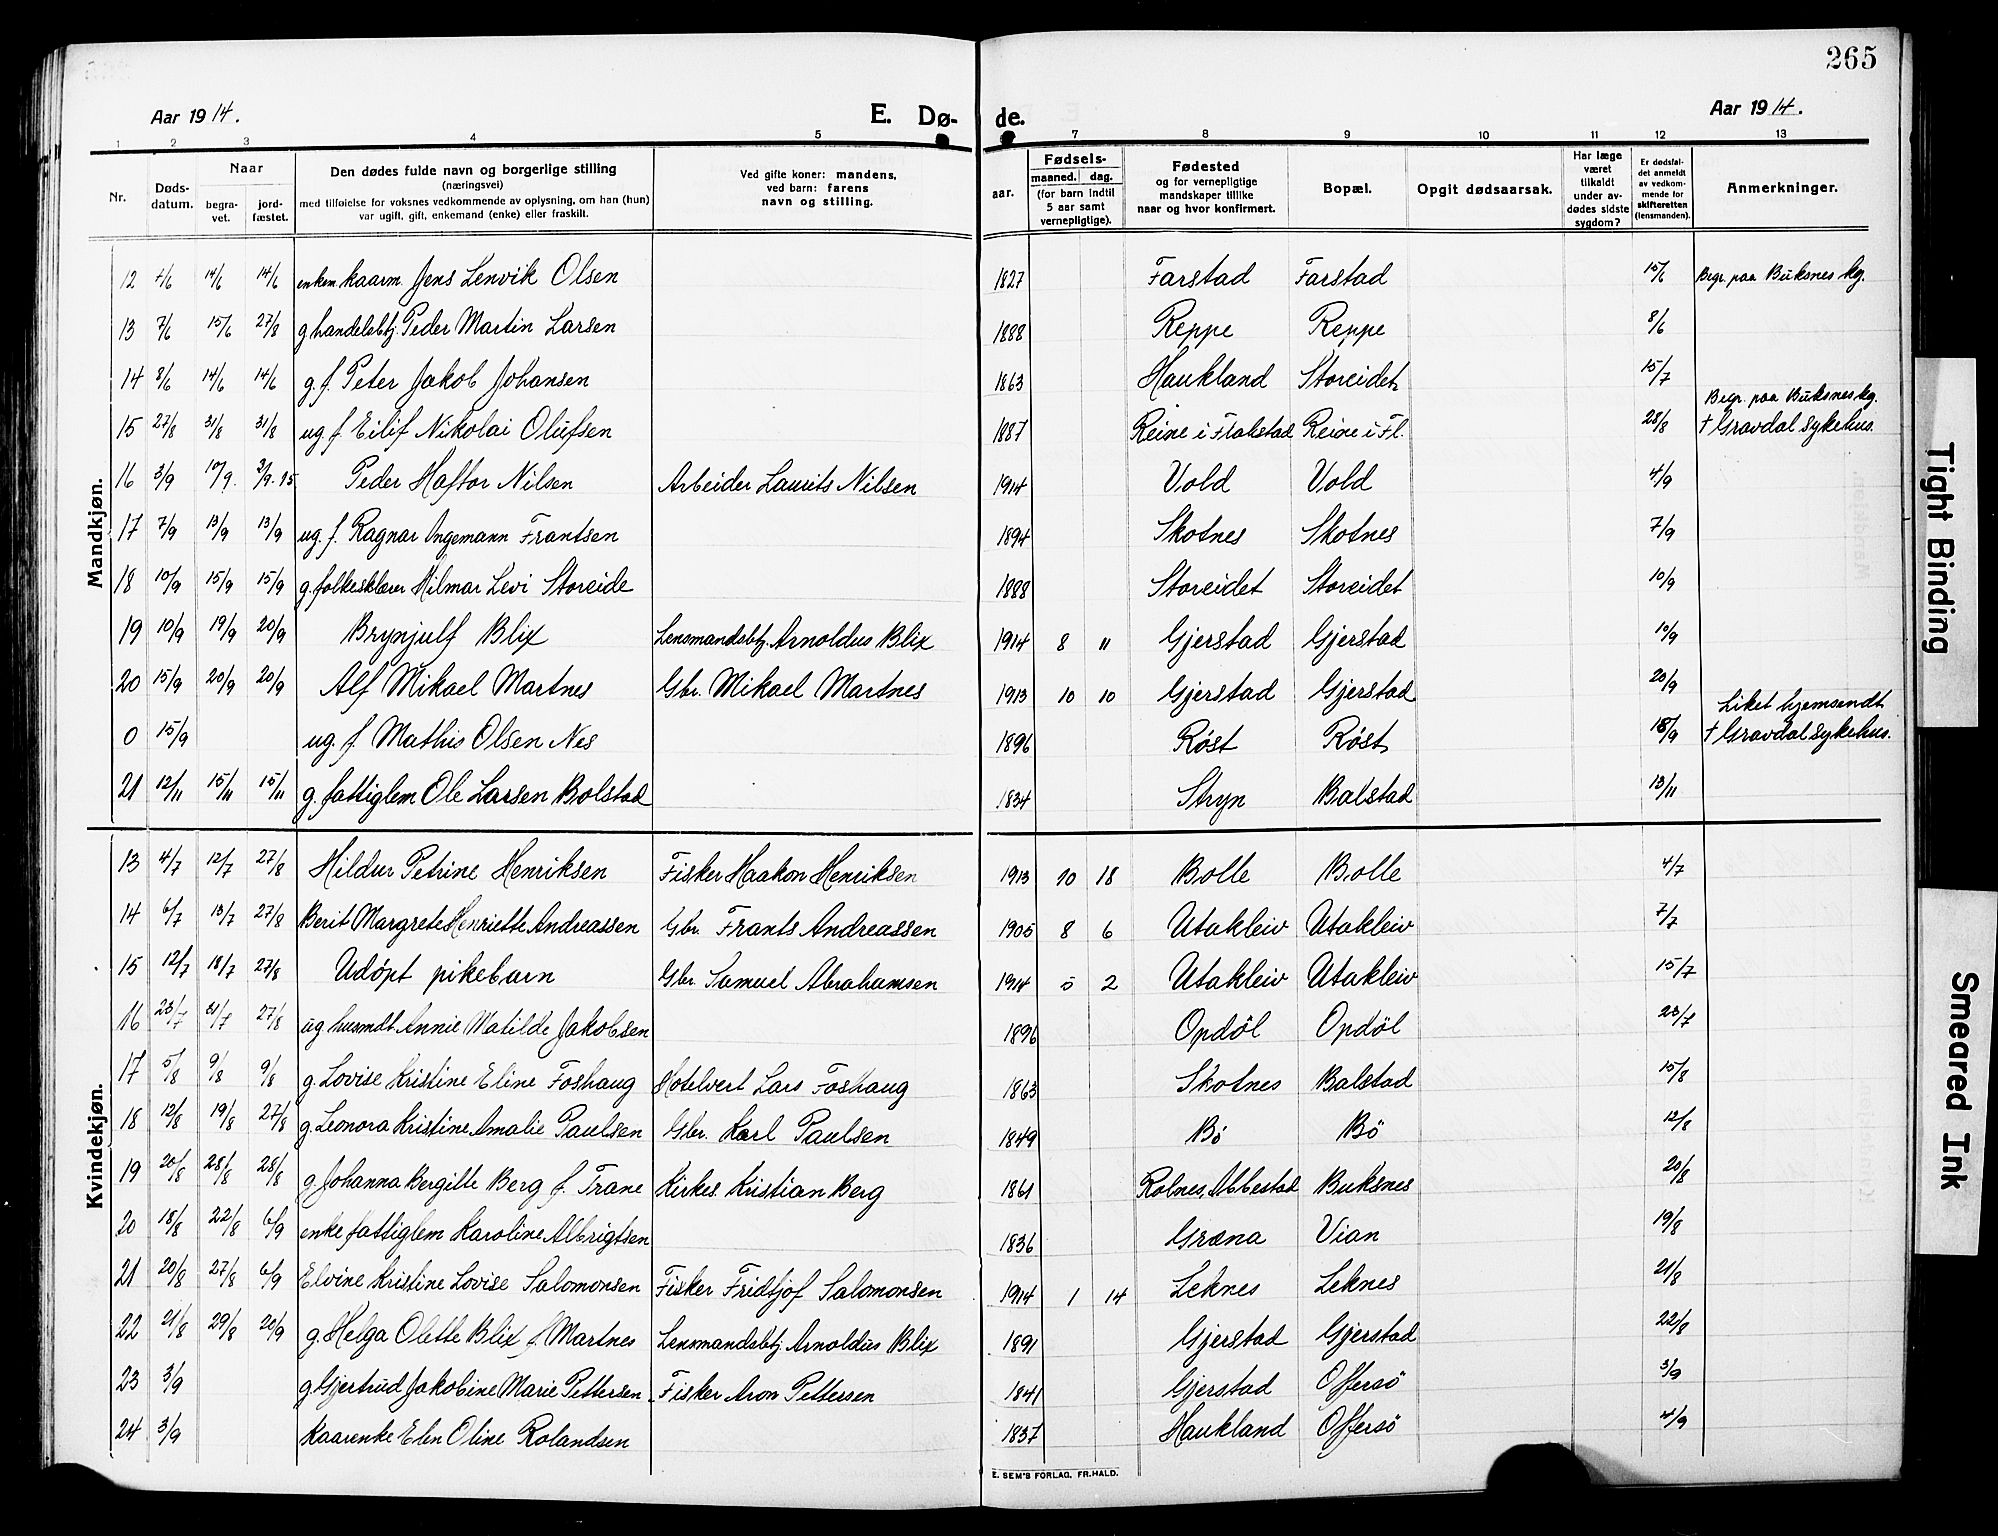 265
Aar 1914.
E. Dø-
de.
Aar 1914.
1 2 3 4 5 7 8 9 10 11 12 13
Nr.
Døds-
datum.
Naar
begra-
vet.
jord-
fæstet.
Den dødes fulde navn og borgerlige stilling
(næringsvei)
med tilføielse for voksnes vedkommende av oplysning, om han (hun)
var ugift, gift, enkemand (enke) eller fraskilt.
Ved gifte koner: mandens,
ved barn: farens
navn og stilling.
aar.
Fødsels-
maaned. dag.
(for barn indtil
5 aar samt
vernepligtige).
Fødested
og for vernepligtige
mandskaper tillike
naar og hvor konfirmert.
Bopæl.
Opgit dødsaarsak.
Har læge
været
tilkaldt
under av-
dødes sidste
sygdom?
Er dødsfal-
det anmeldt
av vedkom-
mende for
skifteretten
(lensmanden).
Anmerkninger.
Mandkjøn.
12 4/6 14/6 14/6 enkem. kaarm. Jens Lenvik Olsen 1827 Farstad Farstad 15/6 Begr. paa Buksnes kg.
13 7/6 15/6 27/8 g. handelsbtj. Peder Martin Larsen 1888 Reppe Reppe 8/6
14 8/6 14/6 14/6 g. f. Peter Jakob Johansen 1863 Haukland Storeidet 15/7
15 27/8 31/8 31/8 ug. f. Eilif Nikolai Olufsen 1887 Reine i Flakstad Reine i Fl. 28/8 Begr. paa Buksnes kg.
† Gravdal sykehus.
16 3/9 10/9. 2/9-15 Peder Haftor Nilsen Arbeider Laurits Nilsen 1914 Vold Vold 4/9
17 7/9 13/9 13/9 ug. f. Ragnar Ingemann Frantsen 1894 Skotnes Skotnes 7/9
18 10/9 15/9 15/9 g. folkesklærer Hilmar Levi Storeide 1888 Storeidet Storeidet 10/9
19 10/9 19/9 20/9 Brynjulf Blix Lensmandsbtj. Arnoldus Blix 1914 8 11 Gjerstad Gjerstad 10/9
20 15/9 20/9 20/9 Alf Mikael Martnes Gbr. Mikael Martnes 1913 10 10 Gjerstad Gjerstad 20/9
0 15/9 ug. f. Mathis Olsen Nes 1896 Røst Røst 18/9 Liket hjemsendt
† Gravdal sykehus.
21 12/11 15/11 15/11 g. fattiglem Ole Larsen Bolstad 1834 Stryn Balstad 13/11
Kvindekjøn.
13 4/7 12/7 27/8 Hildur Petrine Henriksen Fisker Haakon Henriksen 1913 10 18 Bolle Bolle 4/7
14 6/7 13/7 27/8 Berit Margrete Henriette Andreassen Gbr. Frants Andreassen 1905 8 6 Utakleiv Utakleiv 7/7
15 12/7 18/7 27/8 Udøpt pikebarn Gbr. Samuel Abrahamsen 1914 5 2 Utakleiv Utakleiv 15/7
16 23/7 31/7 27/8 ug husmdt. Annie Matilde Jakobsen 1896 Opdöl Opdöl 23/7
17 5/8 9/8 9/8 g. Lovise Kristine Eline Foshaug Hotelvert Lars Foshaug 1863 Skotnes Balstad 15/8
18 12/8 19/8 27/8 g. Leonora Kristine Amalie Paulsen Gbr. Karl Paulsen 1849 Bö Bö 12/8
19 20/8 28/8 28/8 g. Johanna Bergitte Berg f. Trane Kirkes. Kristian Berg 1861 Rolnes, Ibbestad Buksnes 20/8
20 18/8 22/8 6/9 enke fattiglem Karoline Albrigtsen 1836 Græna Vian 19/8
21 20/8 27/8 6/9 Elvine Kristine Lovise Salomonsen Fisker Fridtjof Salomonsen 1914 1 14 Leknes Leknes 21/8
22 21/8 29/8 20/9 g. Helga Olette Blix f. Martnes Lensmandsbtj. Arnoldus Blix 1891 Gjerstad Gjerstad 22/8
23 3/9 g. Gjertrud Jakobine Marie Pettersen Fisker Aron Pettersen 1841 Gjerstad Offersö 3/9
24 3/9 Kaarenke Elen Oline Rolandsen 1837 Haukland Offersö 4/9
E. SEM'S FORLAG, FR.HALD.
Tight Binding
Smeared Ink